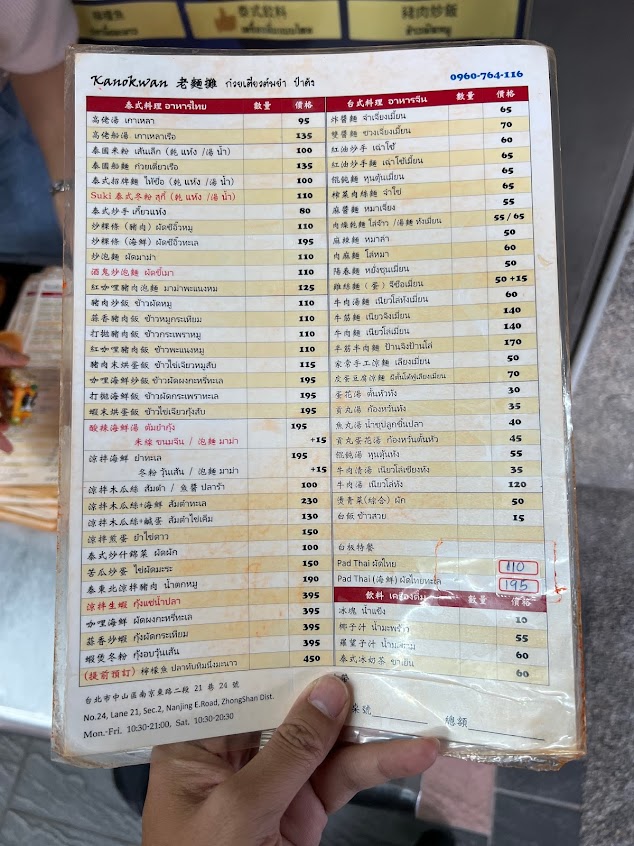 泰式飲料
豬肉炒飯
Kanokwan 老麵攤 ก๋วยเตี๋ยวต้มยำ ป้าดัง
0960-764-116
泰式料理 อาหารไทย 數量 價格
高佬湯 เกาเหลา 95
高佬船湯 เกาเหลาเรือ 135
泰國米粉 เส้นเล็ก (乾 แห้ง /湯 น้ำ) 100
泰國船麵 ก๋วยเตี๋ยวเรือ 135
泰式招牌麵 ให้ชื่อ (乾 แห้ง /湯 น้ำ) 100
Suki 泰式冬粉 สุกี้ (乾 แห้ง /湯 น้ำ) 110
泰式炒手 เกี๊ยวแห้ง 80
炒粿條 (豬肉) ผัดซีอิ๊วหมู 110
炒粿條 (海鮮) ผัดซีอิ๊วทะเล 195
炒泡麵 ผัดมาม่า 110
酒鬼炒泡麵 ผัดขี้เมา 110
紅咖哩豬肉泡麵 มาม่าพะแนงหม 125
豬肉炒飯 ข้าวผัดหมู 110
蒜香豬肉飯 ข้าวหมูกระเทียม 110
打拋豬肉飯 ข้าวกระเพราหมู 110
紅咖哩豬肉飯 ข้าวพะแนงหมู 110
豬肉末烘蛋飯 ข้าวไข่เจียวหมูสับ 115
咖哩海鮮炒飯 ข้าวผัดผงกะหรี่ทะเล 195
打拋海鮮飯 ข้าวผัดกระเพราทะเล 195
蝦末烘蛋飯 ข้าวไข่เจียวกุ้งสับ 195
酸辣海鮮湯 ต้มยำกุ้ง 195
米線 ขนมจีน / 泡麵 มาม่า +15
涼拌海鮮 ยำทะเล 195
冬粉 วุ้นเส้น / 泡麵 มาม่า +15
涼拌木瓜絲 ส้มตำ / 魚醬 ปลาร้า 100
涼拌木瓜絲+海鮮 ส้มตำทะเล 230
涼拌木瓜絲+鹹蛋 ส้มตำไข่เค็ม 130
涼拌煎蛋 ยำไข่ดาว 150
泰式炒什錦菜 ผัดผัก 100
苦瓜炒蛋 ไข่ผัดมะระ 150
泰東北涼拌豬肉 น้ำตกหมู 190
涼拌生蝦 กุ้งแช่น้ำปลา 395
咖哩海鮮 ผัดผงกะหรี่ทะเล 395
蒜香炒蝦 กุ้งผัดกระเทียม 395
蝦煲冬粉 กุ้งอบวุ้นเส้น 395
(提前預訂) 檸檬魚 ปลาทับทิมนึ่งมะนาว 450
台式料理 อาหารจีน 數量 價格
炸醬麵 จ๋าเจี่ยงเมี่ยน 65
雙醬麵 ซวงเจี่ยงเมี่ยน 70
紅油炒手 เฉ่าโซ่ 60
紅油炒手麵 เฉ่าโซ่เมี่ยน 65
餛飩麵 หุนตุ้นเมี่ยน 65
榨菜肉絲麵 จ๋าใช่ 65
麻醬麵 หมาเจี่ยง 55
肉燥乾麵 โล่จ้าว /湯麵 ทังเมี่ยน 55 / 65
麻辣麵 หมาล่า 50
肉麻麵 โล่หมา 60
陽春麵 หยั่งชุนเมี่ยน 50
雞絲麵 (蛋) จีซือเมี่ยน 50 +15
牛肉湯麵 เนียวโล่ทังเมี่ยน 60
牛筋麵 เนียวจิงเมี่ยน 140
牛肉麵 เนียวโล่เมี่ยน 140
半筋半肉麵 ป้านจิงป้านโล่ 170
家常手工涼麵 เลียงเมี่ยน 50
皮蛋豆腐涼麵 70
蛋花湯 ต้านหัวทัง 30
貢丸湯 ก้องหวันทัง 35
魚丸湯 น้ำซุปลูกชิ้นปลา 40
貢丸蛋花湯 ก้องหวันต้านหัว 45
餛飩湯 หุนตุ้นทัง 55
牛肉清湯 เนียวโล่เชียงทัง 35
牛肉湯 เนียวโล่ทัง 120
燙青菜(綜合) ผัก 50
白飯 ข้าวสวย 15
白板特餐
Pad Thai ผัดไทย 110
Pad Thai (海鮮) ผัดไทยทะเล 195
飲料 เครื่องดื่ม 數量 價格
冰塊 น้ำแข็ง 10
椰子汁 น้ำมะพร้าว 55
羅望子汁 น้ำมะขาม 60
泰式冰奶茶 ชาเย็น 60
台北市中山區南京東路二段 21 巷 24 號
No.24, Lane 21, Sec.2, Nanjing E.Road, ZhongShan Dist.
Mon.-Fri. 10:30-21:00, Sat. 10:30-20:30
桌號 總額